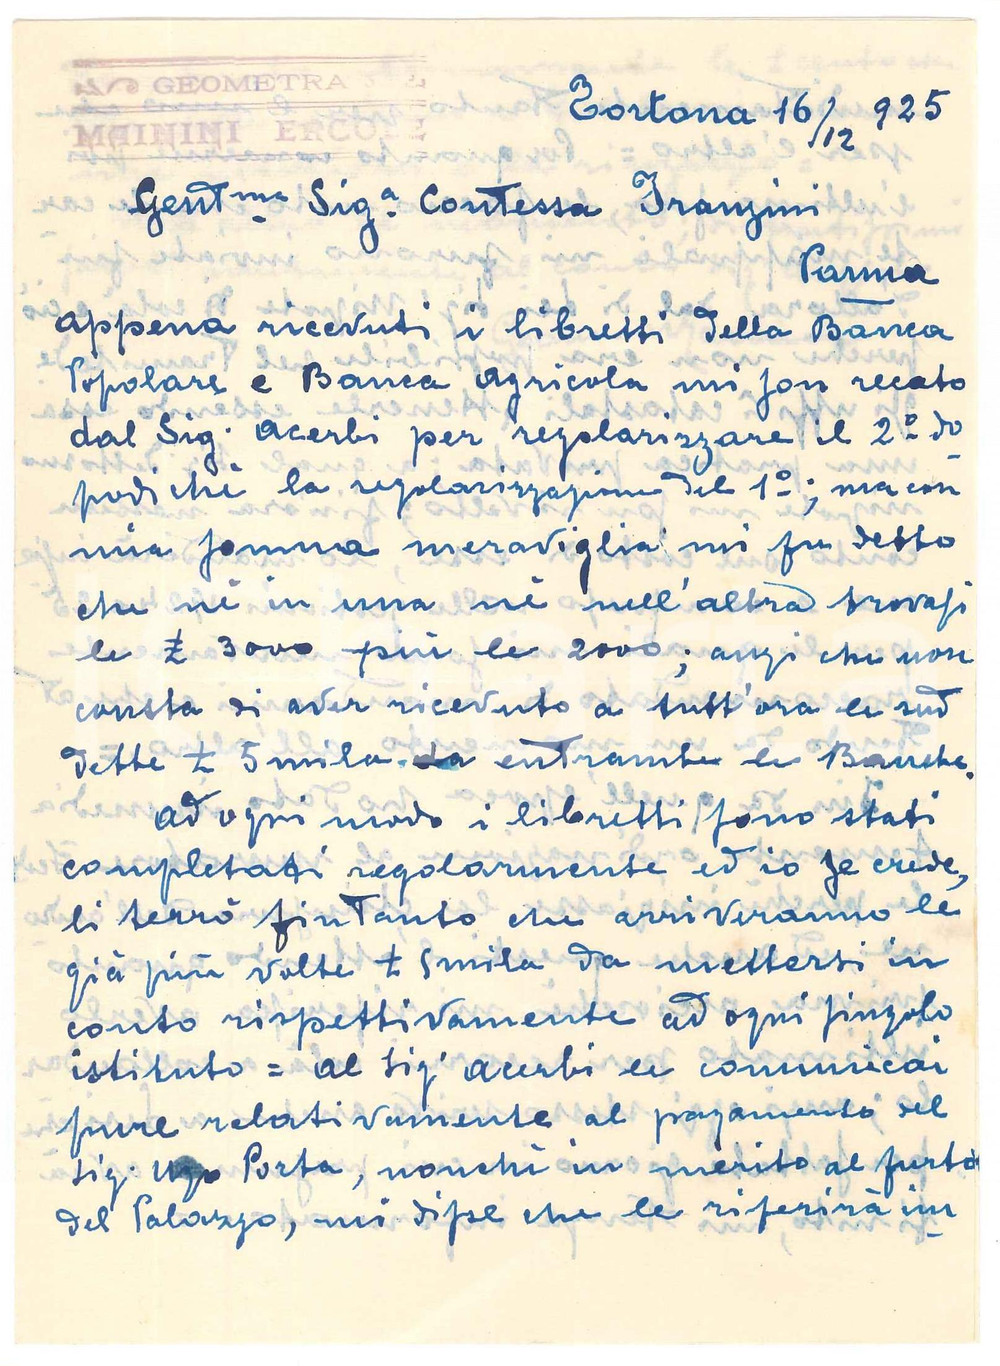 GEOMETRA
MAININI ERCOLE
Tortona 16/12 925
Gent.ma Sig.a Contessa Franzini
Parma
appena ricevuti i libretti della Banca
Popolare e Banca Agricola mi son recato
dal Sig. Acerbi per regolarizzare il 2º do
podichè la regolarizzazione del 1º; ma con
mia somma meraviglia mi fu detto
che nè in una nè nell'altra trovasi
le £ 3000 più le 2000; anzi che non
consta di aver ricevuto a tutt'ora le sud
dette £ 5 mila da entrambe le Banche.
Ad ogni modo i libretti sono stati
completati regolarmente ed io se crede,
li terrò fintanto che arriveranno le
già più volte £ 5mila da mettersi in
conto rispettivamente ad ogni singolo
istituto = Al Sig. Acerbi le comunicai
pure relativamente al pagamento del
Sig. Ugo Porta, nonchè in merito al furto
del Palazzo, mi disse che le riferirà in